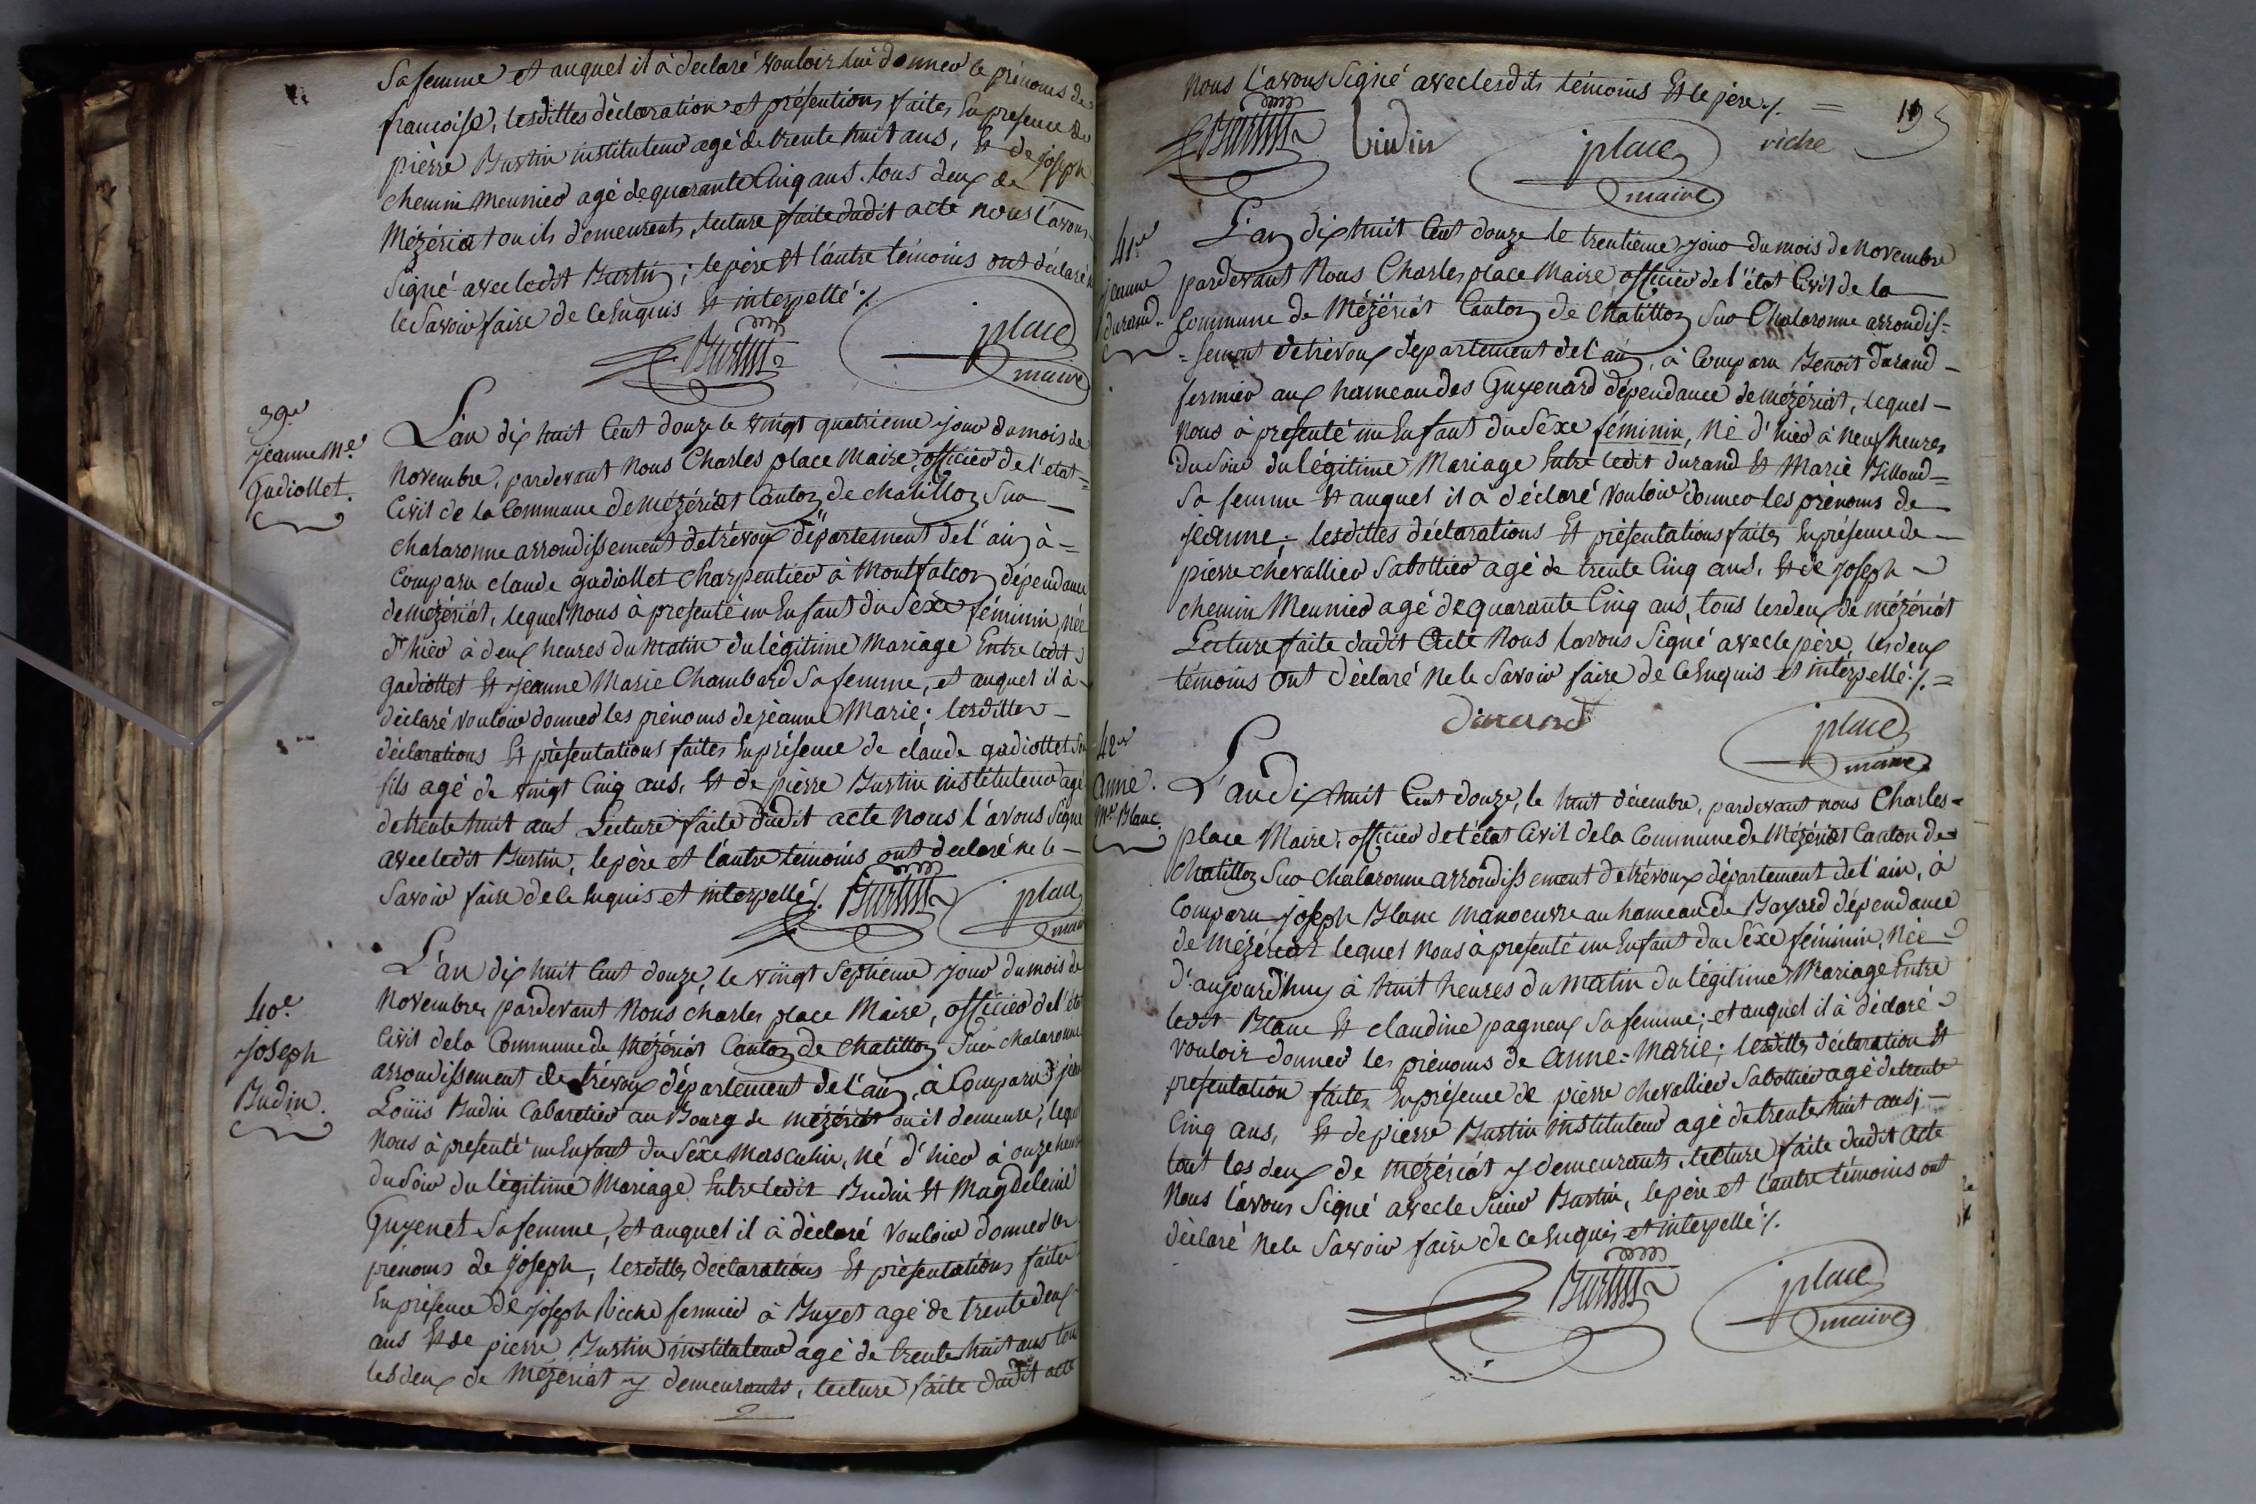 Sa femme et auquel il à déclaré vouloir lui donner le prénoms de
francoise, lesdittes déclaration et présentions faites En presence de
pierre Burtin instituteur agé de trente huit ans, Et de joseph
chemin Meunier agé de quarante Cinq ans. tous deux de
Mézériat ou ils demeurents, lecture faite dudit acte nous l'avons
Signé avec ledit Burtin; le père Et l'autre témoins ont déclaré ne
le Savoir faire de ce Enquis Et interpellé ./.
Burtin
jplace
maire
39.e
jeanne M.e
gadiollet.
L'an dix huit Cent douze le vingt quatrieme jour du mois de
Novembre, pardevant Nous Charles place Maire, officier de l'état =
Civil de la Commune de Mézériat Canton de chatillon Sur
chalaronne arrondissement de trévoux département de l'ain à =
Comparu claude gadiollet Charpentier à Montfalcon dépendance
de mézériat, lequel Nous à presenté un Enfant du Sèxe féminin, née
d'hier à deux heures du matin du légitime Mariage Entre ledit
gadiollet Et jeanne Marie Chambard Sa femme, et auquel il à
déclaré vouloir donner les prénoms de jéanne Marie; lesdittes
déclarations Et présentations faites En présence de claude gadiollet Son
fils agé de vingt Cinq ans, Et de pierre Burtin instituteur agé
de trente huit ans Lecture faite dudit acte Nous l'avons Signé
avec ledit Burtin, le père et l'autre témoins ont declaré ne le
Savoir faire de ce Enquis et interpellé ./. Burtin jplace
maire
40.e
joseph
Budin.
L'an dix huit Cent douze, le vingt Septième jour du mois de
Novembre, pardevant Nous charles place Maire, officier de l'état
Civil de la Commune de Mézériat Canton de chatillon Sur chalaronne
arrondissement de trévoux département de l'ain, à Comparu jean
Loüis Budin Cabaretier au Bourg de mézériat ou il demeure, lequel
Nous à presenté un Enfant du Sèxe Masculin, né d'hier à onze heures
du Soir du légitime Mariage Entre ledit Budin Et Magdeleine
Guyenet Sa femme, et auquel il à déclaré Vouloir donner les
prénoms de joseph, lesdittes déclarations Et présentations faites
En présence de joseph Riche fermier à Buyet agé de trente deux
ans Et de pierre Burtin instituteur agé de trente huit ans tous
les deux de Mézériat y demeurants, lecture faite dudit acte
Nous l'avons Signé avec lesdits témoins Et le père ./. = 195
Burtin budin jplace riche
maire
41.e
jeanne
durand.
L'an dix huit Cent douze le trentième jour du mois de Novembre
pardevant Nous Charles place Maire officier de l'état Civil de la
Commune de Mézériat Canton de Chatillon Sur Chalaronne arrondis=
=sement de trévoux département de l'ain, à Comparu Benoit durand
fermier aux hameau des Guyenard dépendance de mézériat, lequel
Nous à presenté un Enfant du Sèxe féminin, Né d'hier à neuf heures
du Soir du légitime Mariage Entre ledit durand Et Marie Billoud
Sa femme Et auquel il à déclaré vouloir donner les prénoms de
jeanne; lesdittes déclarations Et présentations faites En présence de
pierre chevallier Sabottier agé de trente Cinq ans, Et de joseph
chemin Meunier agé de quarante Cinq ans, tous les deux de mézériat
Lecture faite dudit Acte Nous lavons Signé avec le père, les deux
témoins ont déclaré Ne le Savoir faire de ce Enquis et interpellé ./. =
durand
jplace
maire
42.e
Anne.
M.e Blanc.
L'an dix huit Cent douze, le huit décembre, pardevant nous Charles
place Maire, officier de l'état Civil de la Commune de Mézériat Canton de
chatillon Sur chalaronne arrondissement de trévoux département de l'ain, à
Comparu joseph Blanc manoeuvre au hameau de Bayard dépendance
de mézériat lequel Nous à presenté un Enfant du Sèxe féminin, Née
d'aujourd'huy à huit heures du matin du légitime Mariage Entre
ledit Blanc Et claudine pagneux Sa femme; et auquel il à déclaré
vouloir donner les prénoms de Anne-Marie; lesdittes déclaration Et
presentation faites En présence de pierre chevallier Sabottier agé de trente
Cinq ans, Et de pierre Burtin instituteur agé de trente huit ans;
tout les deux de mézériat y demeurants, lecture faite dudit Acte
Nous l'avons Signé avec le Sieur Burtin, le père et l'autre témoins ont
déclaré Ne le Savoir faire de ce Enquis et interpellé ./.
Burtin
jplace
maire